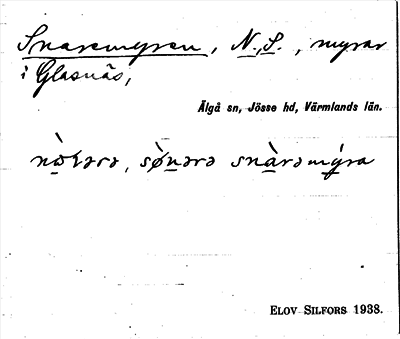 Snaremyren, N., S., myrar
i Glasnäs,
Älgå sn, Jösse hd, Värmlands län.
sǿnərə snàrəmýra
ELOV SILFORS 1938.